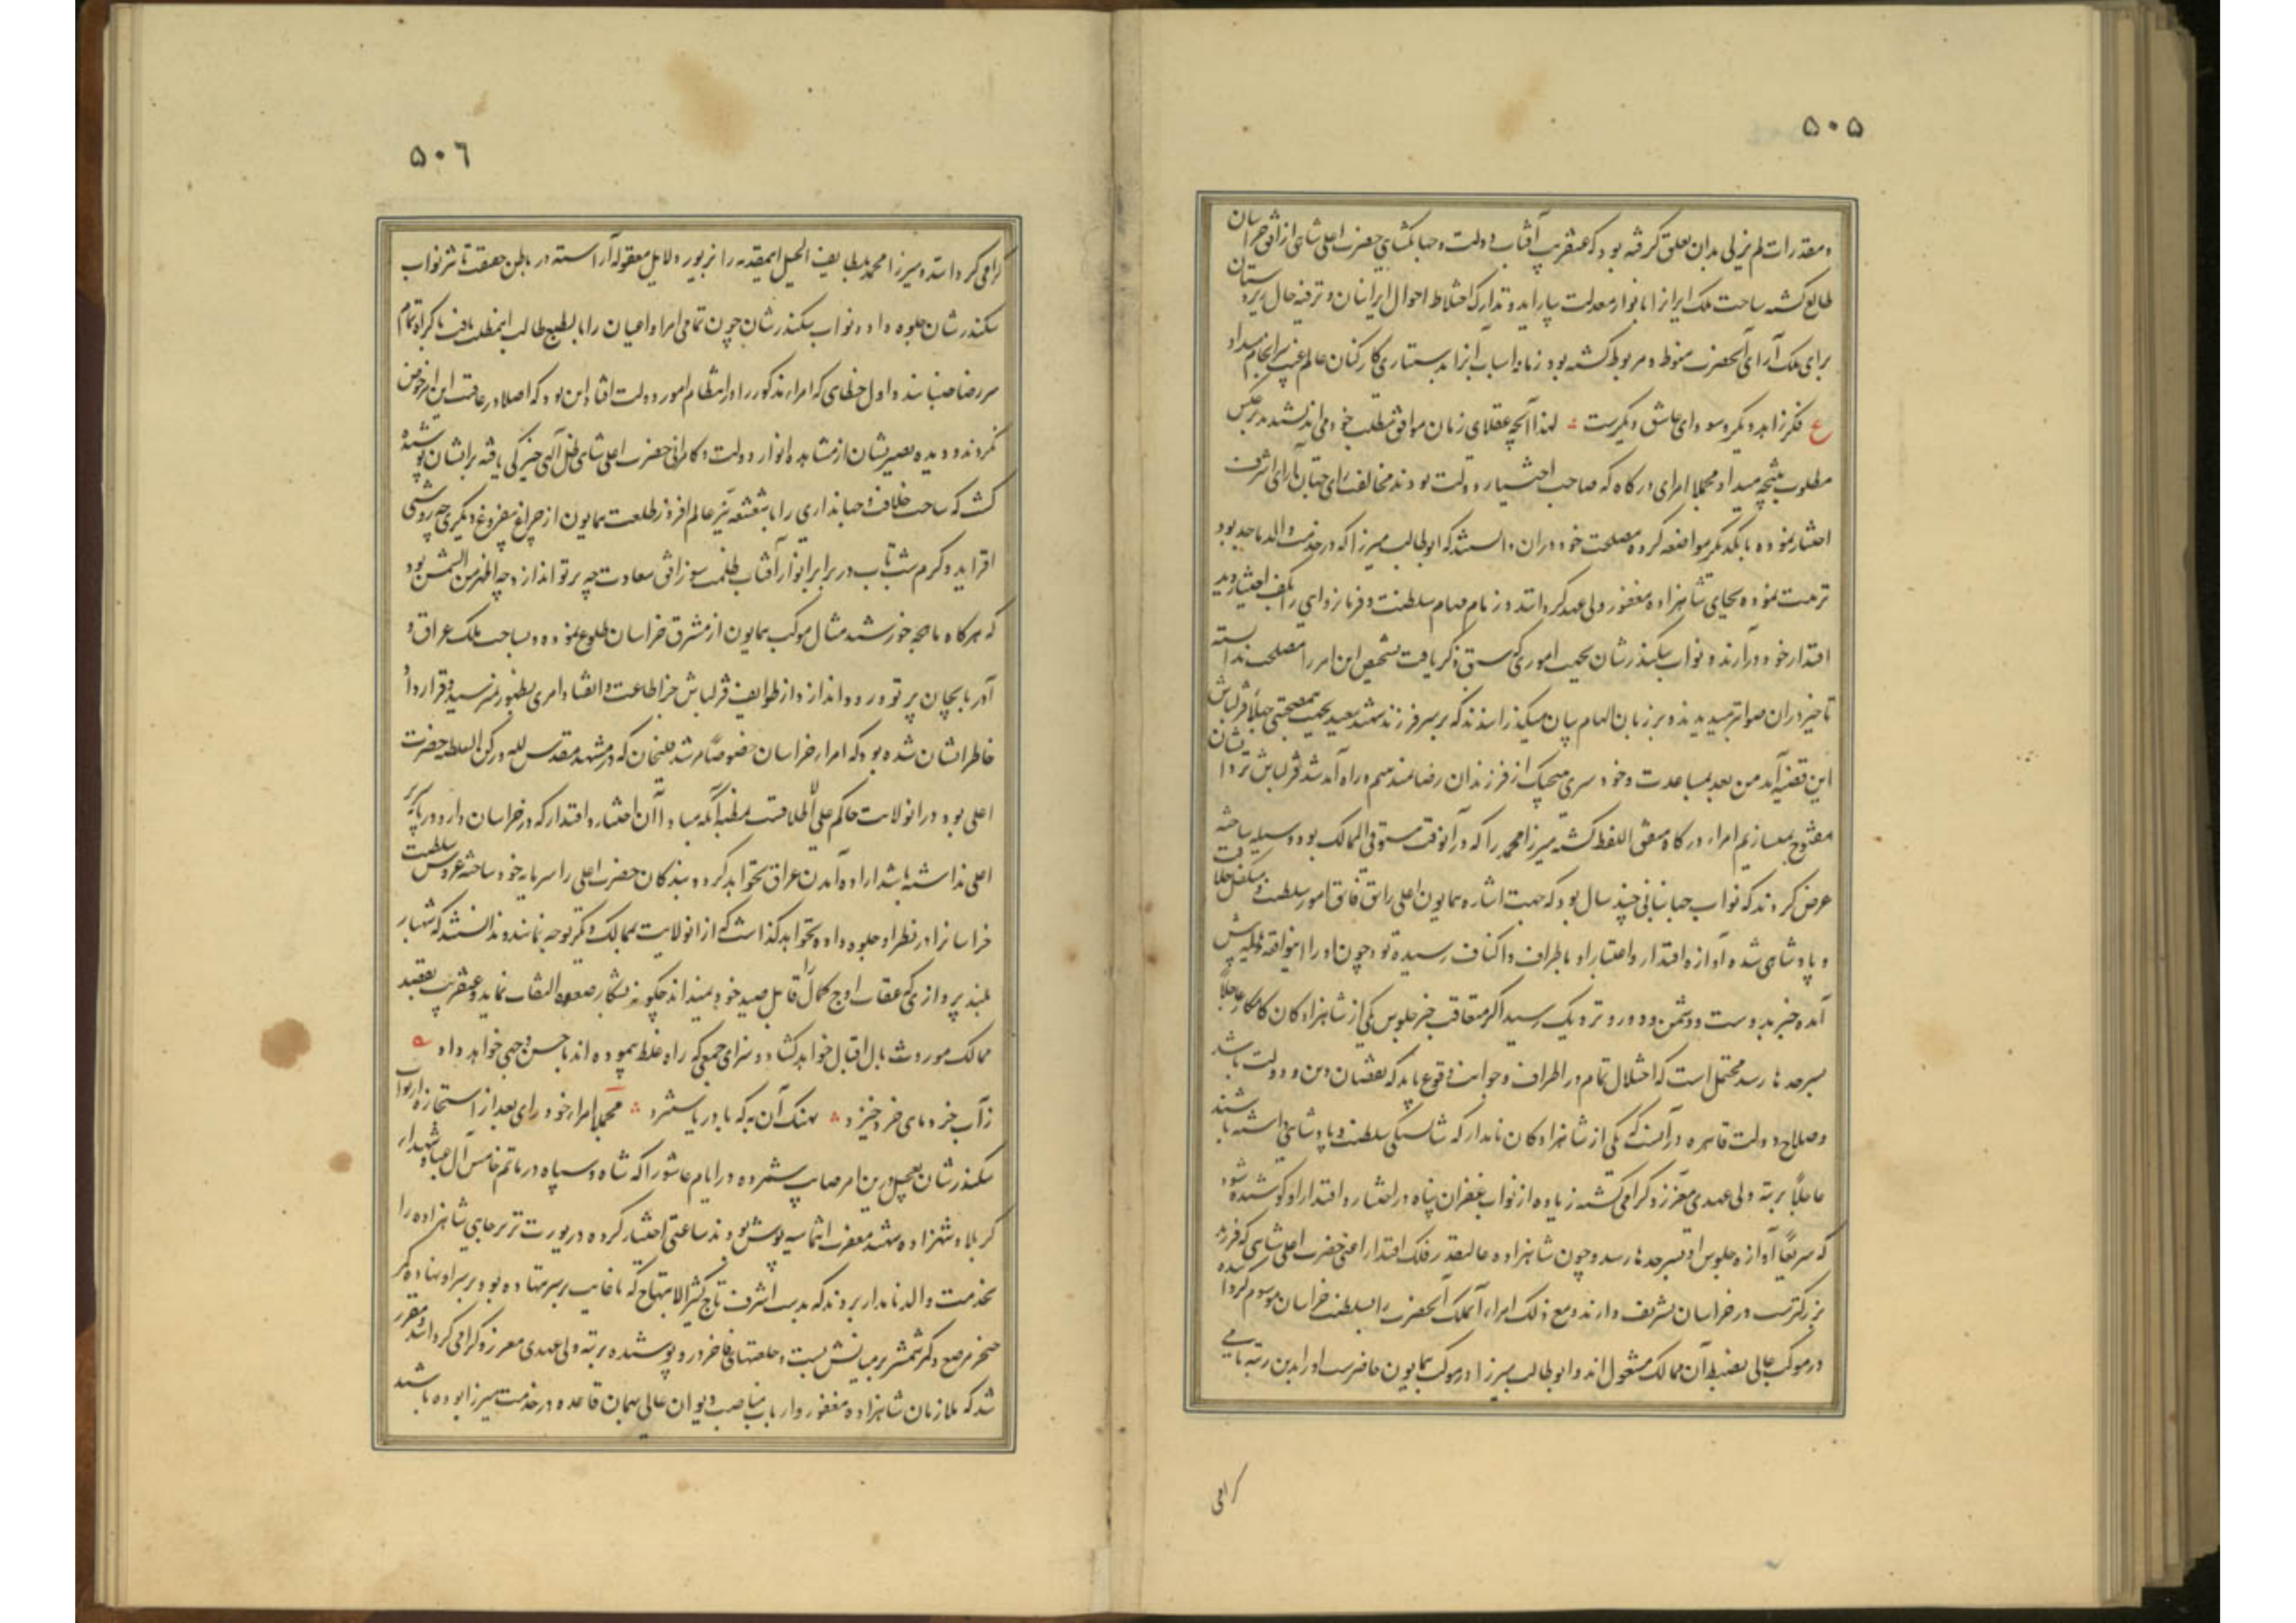 ۵۰۵
ومقدرات لم یزلی بدان تعلق گرفته بود که عنقریب آفتاب دولت و جهانگشای حضرت اعلی شاهی از افق خراسان
طالع گشته ساحت ملک ایران را بانوار معدلت بیاراید و تدارک اختلاط احوال ایرانیان و ترفیه حال زیردستان
برای ملک آرای آنحضرت منوط و مربوط گشته بود زمانه اسباب آنرا بدستیاری کارکنان عالم غیب سرانجام میداد
ع فکر زاهد دیگر و سودای عاشق دیگرست لهذا آنچه عقلای زمان موافق مطلب خود می اندیشیدند برعکس
مطلوب نتیجه میداد مجملا امرای درگاه که صاحب اختیار دولت بودند مخالفت رای جهان آرای اشرف
اختیار نموده با یکدیگر مواضعه کرده مصلحت خود در آن دانستند که ابوطالب میرزا که در خدمت والد ماجد بود
تربیت نموده بجای شاهزاده مغفور ولی عهد گردانند و زمام مهام سلطنت و فرمانروایی را بکف اختیار و ید
اقتدار خود درآرند و نواب سکندرشان بجهت اموری که سبق ذکر یافت تشخیص این امر را مصلحت ندانسته
تاخیر در آن صوابتر میدیدند و بر زبان الهام بیان میگذرانیدند که بر سر فرزند شهید سعید بجهت بیمصلحتی جهلاء قزلباش
این قضیه آمد من بعد بمباعدت و خود سری هیچیک از فرزندان رضامند نیستیم و راه آمد شد قزلباش نزد ایشان
مفتوح نمیسازیم امراء درگاه متفق اللفظ گشته میرزا محمد را که در آنوقت مستوفی الممالک بود وسیله ساخته
عرض کردند که نواب جهانبانی چند سال بود که جهت اشاره همایون اعلی راتق و فاتق امور سلطنت و متکفل خلافت
و پادشاهی شده آوازه اقتدار و اعتبار او باطراف و اکناف رسیده بود چون او را اینواقعه هایله پیش
آمده خبر بدوست و دشمن و دور و نزدیک رسید اگر متعاقب خبر جلوس یکی از شاهزادگان کامکار عاجلا
بسرحدها نرسد محتمل است که اختلال تمام در اطراف و جوانب وقوع یابد که نقصان دین و دولت باشد
و صلاح دولت قاهره در آنست که یکی از شاهزادگان نامدار که شایستگی سلطنت و پادشاهی داشته باشند
عاجلا برتبه ولی عهدی معزز و گرامی گشته زیاده از نواب غفران پناه در اختیار و اقتدار او کوشیده شود
که سریعا آوازه جلوس او بسرحدها رسد و چون شاهزاده عالیقدر فلک اقتدار اعنی حضرت اعلی شاهی که فرزند
بزرگترست در خراسان تشریف دارند و مع ذلک امراء آنملک آنحضرت را بسلطنت خراسان موسوم گردانیده
در موکب عالی بضبط آن ممالک مشغول اند و ابوطالب میرزا در موکب همایون حاضرست او را بدین رتبه نامی
گرامی
۵۰٦
گرامی گردانند و میرزا محمد بلطایف الحیل این مقدمه را بزیور دلایل معقوله آراسته در باطن حقیقت تاثر نواب
سکندرشان جلوه داد و نواب سکندرشان چون تمامی امرا و اعیان را بالطبع طالب این مطلب یافت باکراه تمام
سر رضا جنبانیدند و اول خطای که امراء مذکور را در انتظام امور دولت افتاد این بود که اصلا در عاقبت این امر خوض
نکردند و دیده بصیرتشان از مشاهده انوار دولت و کامرانی حضرت اعلی شاهی ظل الهی خیرگی یافته بر ایشان پوشیده
گشت که ساحت خلافت و جهانداری را با شعشعه نیر عالم افروز طلعت همایون از چراغ بیفروغ دیگری چه روشنی
افزاید و کرم شب تاب در برابر انوار آفتاب ظلمت سوز افق سعادت چه پرتو اندازد چه اظهر من الشمس بود
که هرگاه ماهچه خورشید مثال موکب همایون از مشرق خراسان طلوع نموده و بساحت ملک عراق و
آذربایجان پرتو ورود اندازد از طوایف قزلباش جز اطاعت و انقیاد امری بظهور نمیرسید و قرارداد
خاطر ایشان شده بود که امراء خراسان خصوصا مرشد قلیخان که در مشهد مقدس لله و رکن السلطنه حضرت
اعلی بود و در آنولایت حاکم علی الاطلاقست مظنه آنکه مبادا آن اختیار و اقتدار که در خراسان دارد در پایه سریر
اعلی نداشته باشد اراده آمدن عراق نخواهد کرد و بندگان حضرت اعلی را سرمایه خود ساخته عروس سلطنت
خراسانرا در نظر او جلوه داده نخواهد گذاشت که از آنولایت بممالک دیگر توجه نمایند و ندانستند که شهباز
بلند پروازی که عقاب اوج کمال را قابل صید خود نمیداند چگونه بشکار صعوه التفات نماید و عنقریب بقصد
ممالک موروث بال اقبال خواهد گشاد و سزای جمعی که راه غلط پیموده اند باحسن وجهی خواهد داد ه
ز آب خرد ماهی خرد خیزد نهنگ آن به که با دریا ستیزد مجملا امراء خود رای بعد از استجازه از نواب
سکندرشان تعجیل درین امر صایب شمرده در ایام عاشورا که شاه و سپاه در ماتم خامس آل عبا و شهدای
کربلا و شهزاده شهید مغفرت انتما سیه پوش بودند ساعتی اختیار کرده در یورت ترتر جایی شاهزاده را
بخدمت والد نامدار بردند که بدست اشرف تاج کثیر الابتهاج که تا غایب بر سر نهاده بود بر سر او نهاده کمر
خنجر مرصع و کمر شمشیر بر میانش بست و خلعتهای فاخر در و پوشیده برتبه ولی عهدی معزز و گرامی گردانند و مقرر
شد که ملازمان شاهزاده مغفور و ارباب مناصب دیوان عالی بهمان قاعده در خدمت میرزا بوده باشند